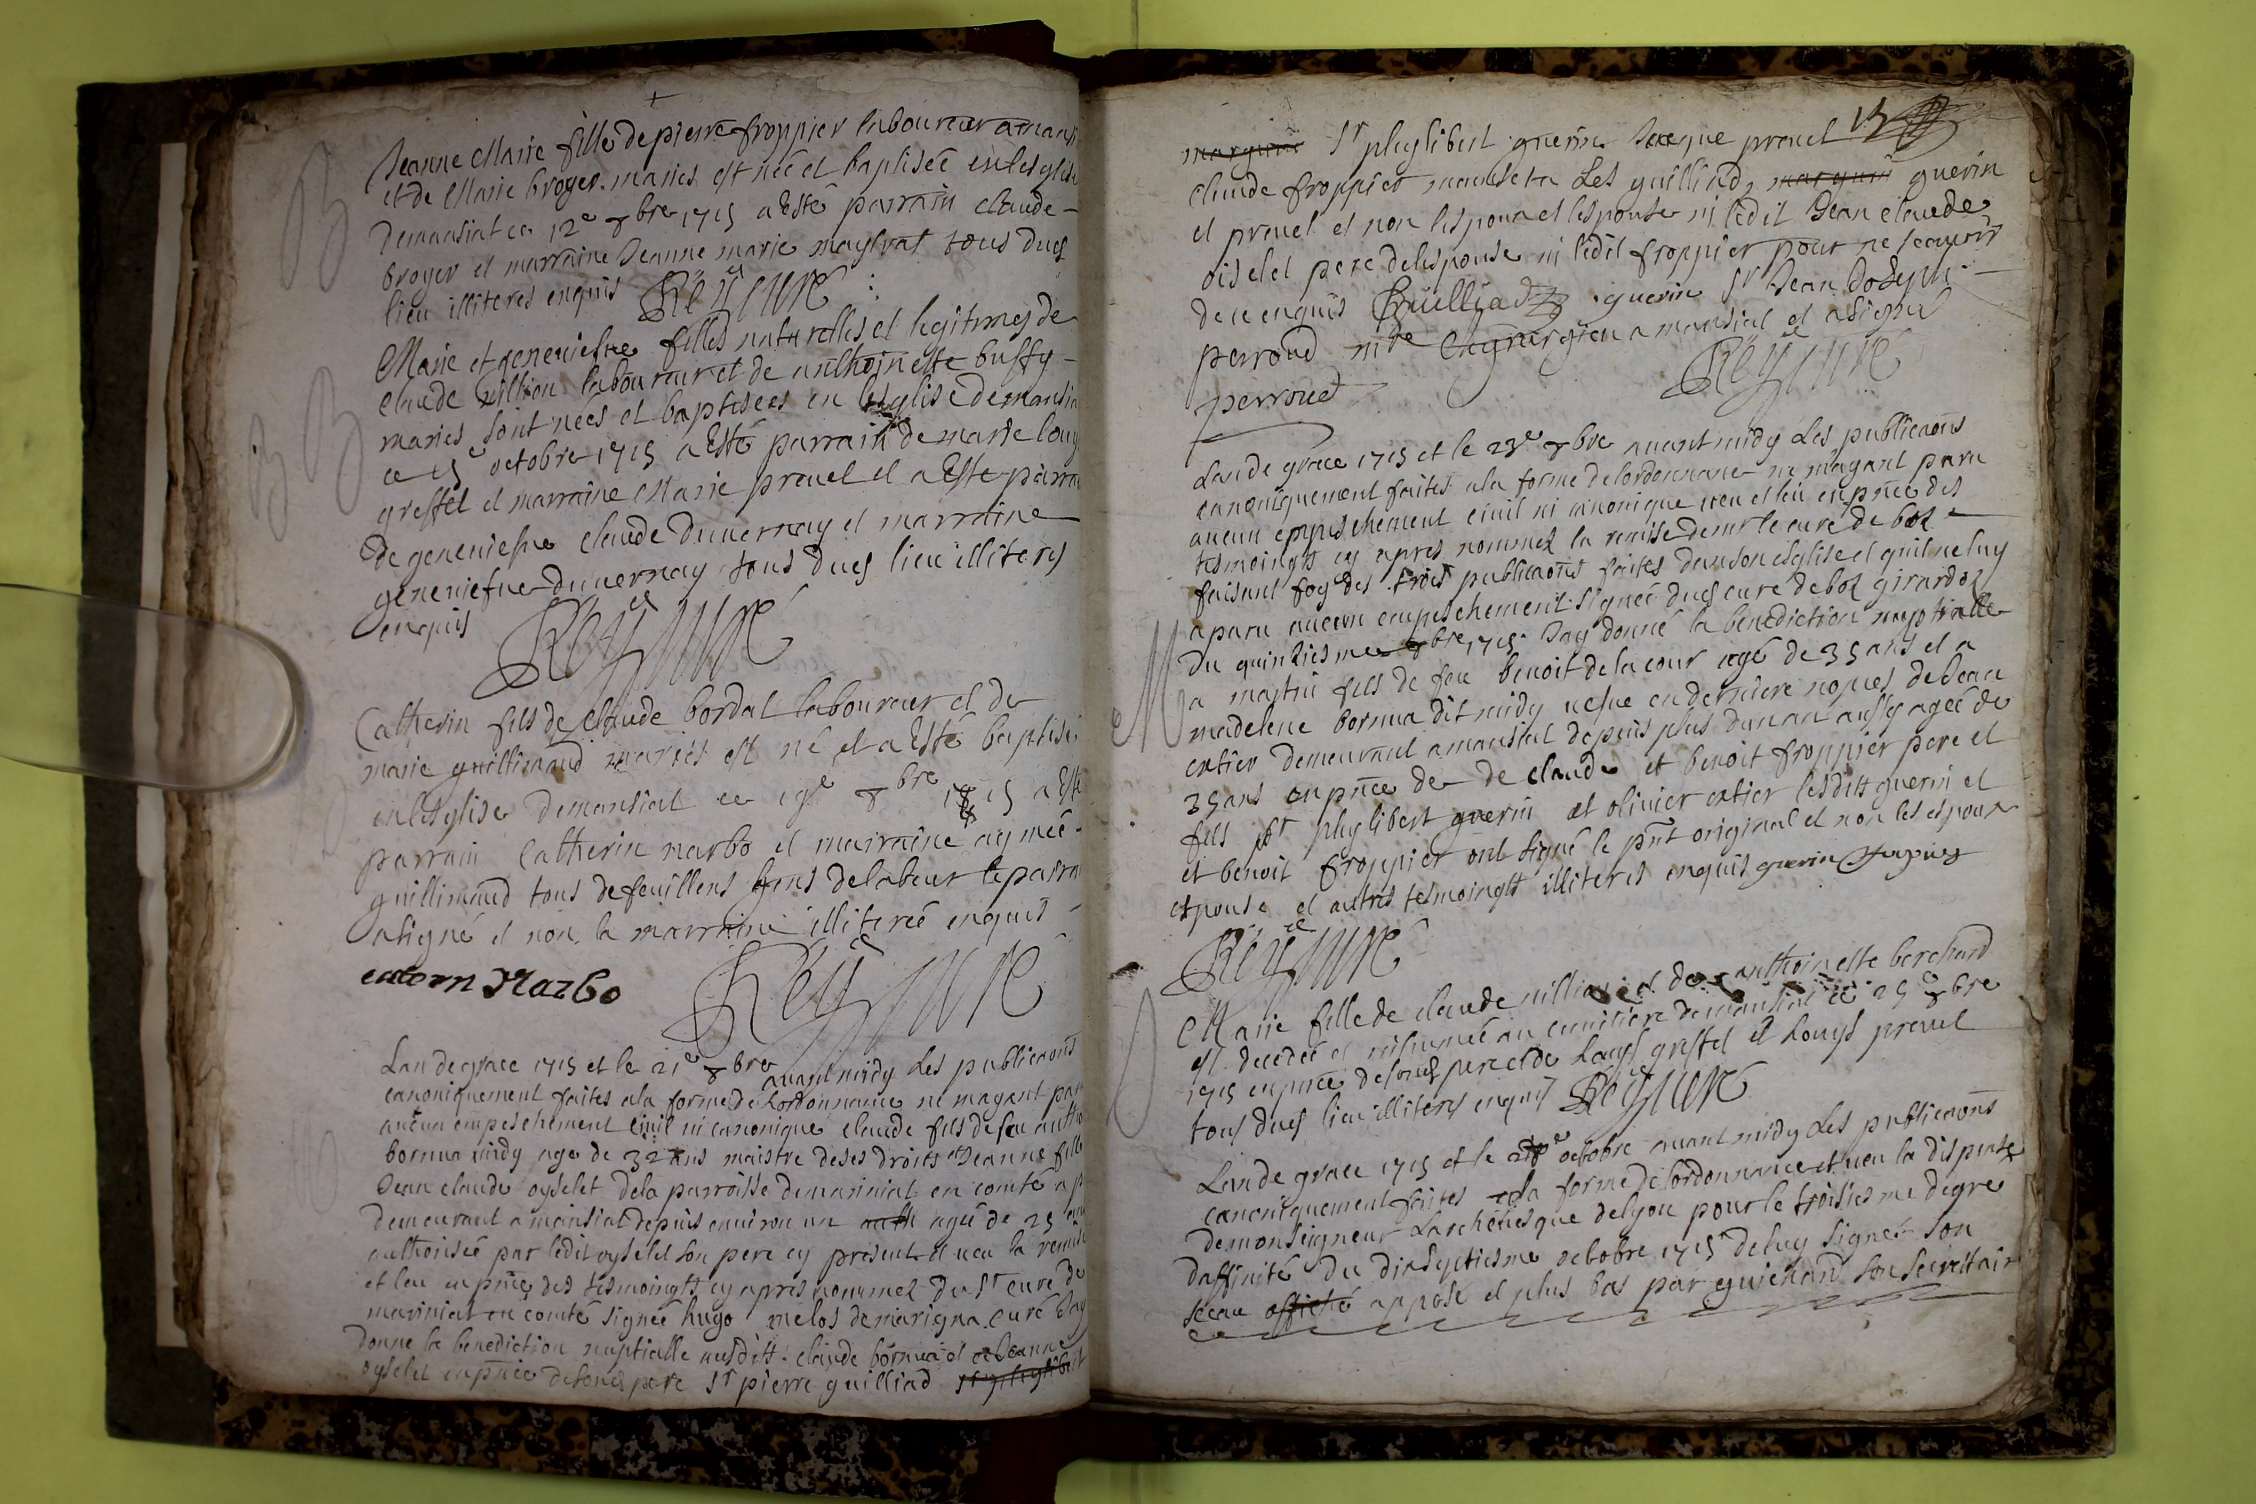 Jeanne Marie fille de pierre froppier laboureur a mansi
et de Marie broyer maries est née et baptiseé en lesglise
demansiat ce 12e 8bre 1715 a Esté parrain claude
broyer et marraine Jeanne marie maystrat tous dud
lieu illiteres enquis Rëy curé
B
Marie et geneniefue filles naturelles et legitimes de
claude uillion laboureur et de anthoinette buffy
maries sont nées et baptisées en lesglise demansia
ce 15e octobre 1715 a Esté parrain de marie louy
greffet et marraine Marie preuel et a Este parra
de geneniefue claude duuernay et marraine
geneniefue duuernay tous dud lieu illiteres
enquis Rëy curé
B B
Catherin fils de claude bordat laboureur et de
marie guillimaud mariés est né et a Esté baptisé
en lesglise demansiat ce 19e 8bre 1715 a Esté
parrain Catherin narbo et marraine aymeé
guillimaud tous defeuillens gens delabeur le parra
asigné et non la marraine illitereé enquis
catern Narbo Rëy curé
Lan de grace 1715 et le 21e 8bre auant midy Les publicaons
canoniquement faites ala forme de Lordonnance ne mayant par
aucun empeschement ciuil ni canonique claude fils de feu antho
bornua midy age de 32 ans maistre de ses droits Jeanne fille
Jean claude oyselet dela parroisse demariniat en comté
demeurant a mansiat depuis enuiron un agée de 25 ans
authorisée par ledit oyselet son pere cy present et ueu la remise
et leu en pnce des tesmoingts cy apres nommez du Sr curé de
mariniat en comté signée hugo melos demarigna curé Jay
donné la benediction nuptialle ausdits claude bornua et Jeanne
oyselet en pnce desond pere Sr pierre guilliad Sr phylibert
15
marguin Sr phylibert guerin Jacque preuel
claude froppier Les guilliad marguin guerin
et preuel et non lespoux et lespouse ni ledit Jean claude
oiselet pere delespouse ni ledit froppier pour ne scauoir
de ce enquis Guilliad guerin Sr Jean Joseph
perroud mtre chyrurgien a mansiat et a signé
perroud Rëy curé
M
Lan de grace 1715 et le 23e 8bre auant midy Les publicaons
canoniquement faites ala forme delordonnance ne mayant paru
aucun empeschement ciuil ni canonique ueu et leu en pnce des
tesmoingts cy apres nommez la remise demr le curé de boz
faisant foy des trois publicaons faites dans son esglise et quil ne luy
a paru aucun empeschement signée dud curé deboz girardoz
du quinziesme 8bre 1715 Jay donné la benediction nuptialle
a martin fils de feu benoit de la cour agé de 35 ans et a
madelene bornua dit midy uefue en derniere nopces de Jean
catier demeurant a mansiat depuis plus dun an aussy agée de
35 ans en pnce de de claude et benoit froppier pere et
fils Sr phylibert guerin et oliuier catier lesdits guerin et
et benoit froppier ont signé le pnt original et non les espoux
espouse et autres tesmoingts illiteres enquis guerin
Rëy curé
Marie fille de claude uillion et de anthoinette berchard
est decedeé et inhumeé au cimitiere demansiat ce 25e 8bre
1715 en pnce desond pere et de Louys greffet et Louys preuel
tous dud lieu illiteres enquis Rëy curé
Lan de grace 1715 et le octobre auant midy Les publicaons
canoniquement faites ala forme de lordonnance et ueu la dispense
de monseigneur Larcheuesque delyon pour le troisiesme degré
daffinité du dixseptiesme octobre 1715 de luy signée son
sceau affiché apposé et plus bas par guichard son secrettaire